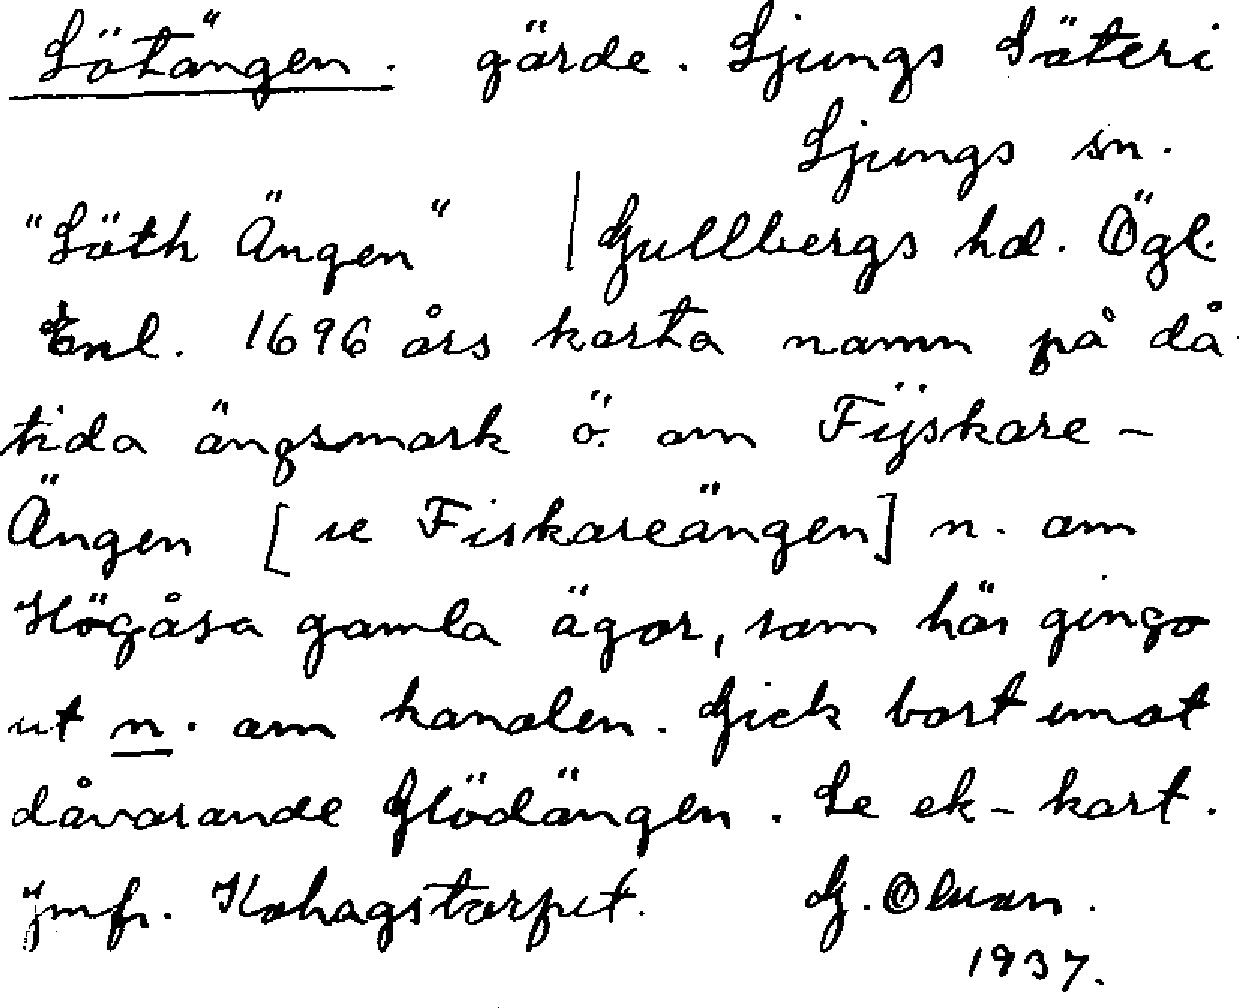 Sötängen. gärde. Ljungs Säteri
Ljungs sn.
"Söth Ängen" | Gullbergs hd. Ögl.
Enl. 1696 års karta namn på då-
tida ängsmark ö. om Fijskare-
Ängen [se Fiskareängen] n. om
Högåsa gamla ägor, som här gingo
ut n. om kanalen. Gick bort emot
dåvarande Glödängen. Se ek-kart.
Jmfr. Kohagstorpet. G. Olsson.
1937.